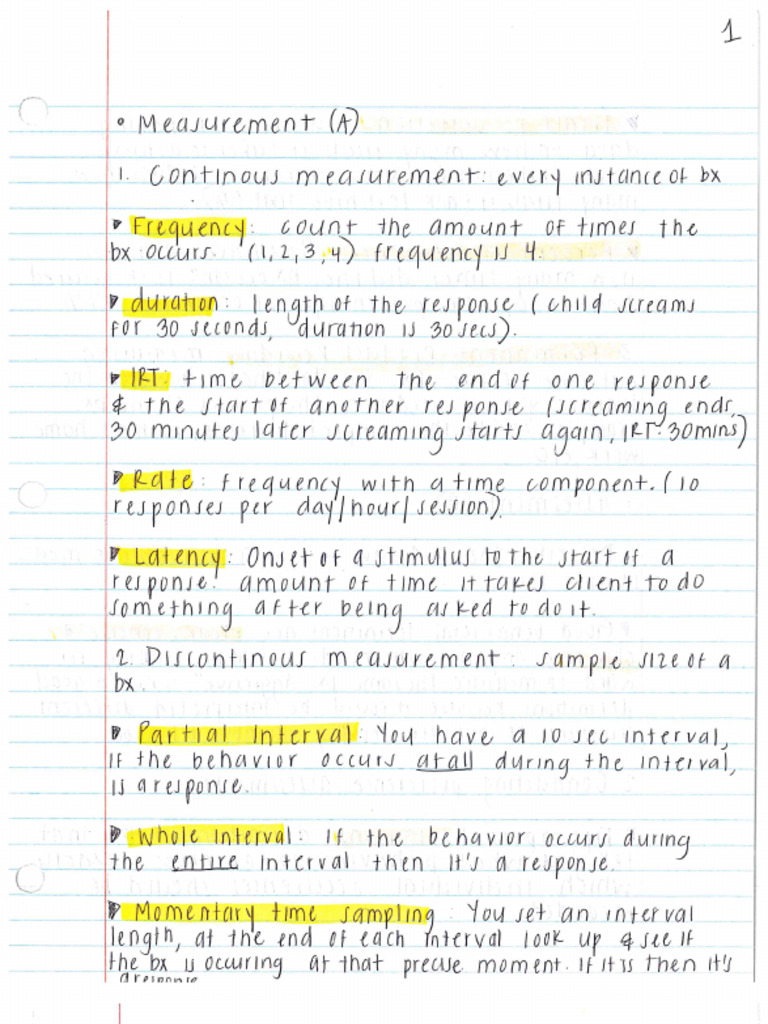 1
• Measurement (A)
1. Continous measurement: every instance of bx
▼ Frequency: count the amount of times the
bx occurs. (1,2,3,4) frequency is 4.
▼ duration: length of the response (child screams
for 30 seconds, duration is 30 secs).
▼ IRT: time between the end of one response
& the start of another response (screaming ends,
30 minutes later screaming starts again, IRT: 30mins)
▼ Rate: frequency with a time component. (10
responses per day/hour/session)
▼ Latency: Onset of a stimulus to the start of a
response. amount of time it takes client to do
something after being asked to do it.
2. Discontinous measurement: sample size of a
bx.
▼ Partial Interval: You have a 10 sec interval,
if the behavior occurs atall during the interval,
is a response.
▼ Whole interval: if the behavior occurs during
the entire interval then it's a response.
▼ Momentary time sampling: You set an interval
length, at the end of each interval look up & see if
the bx is occuring at that precise moment. If it is then it's
a response